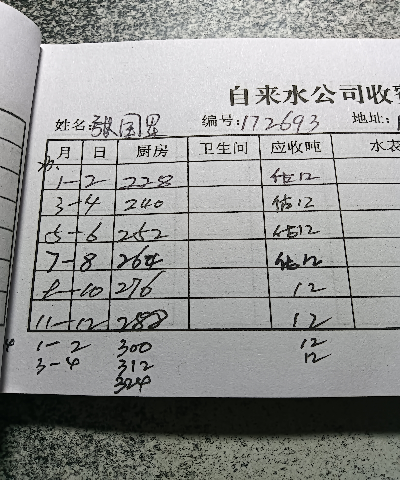 自来水公司收
姓名:张国呈 编号:172693 地址:
月 日 厨房 卫生间 应收吨 水表
1-2 228 估12
3-4 240 估12
5-6 252 估12
7-8 264 估12
9-10 276 12
11-12 288 12
1-2 300 12
3-4 312 12
324